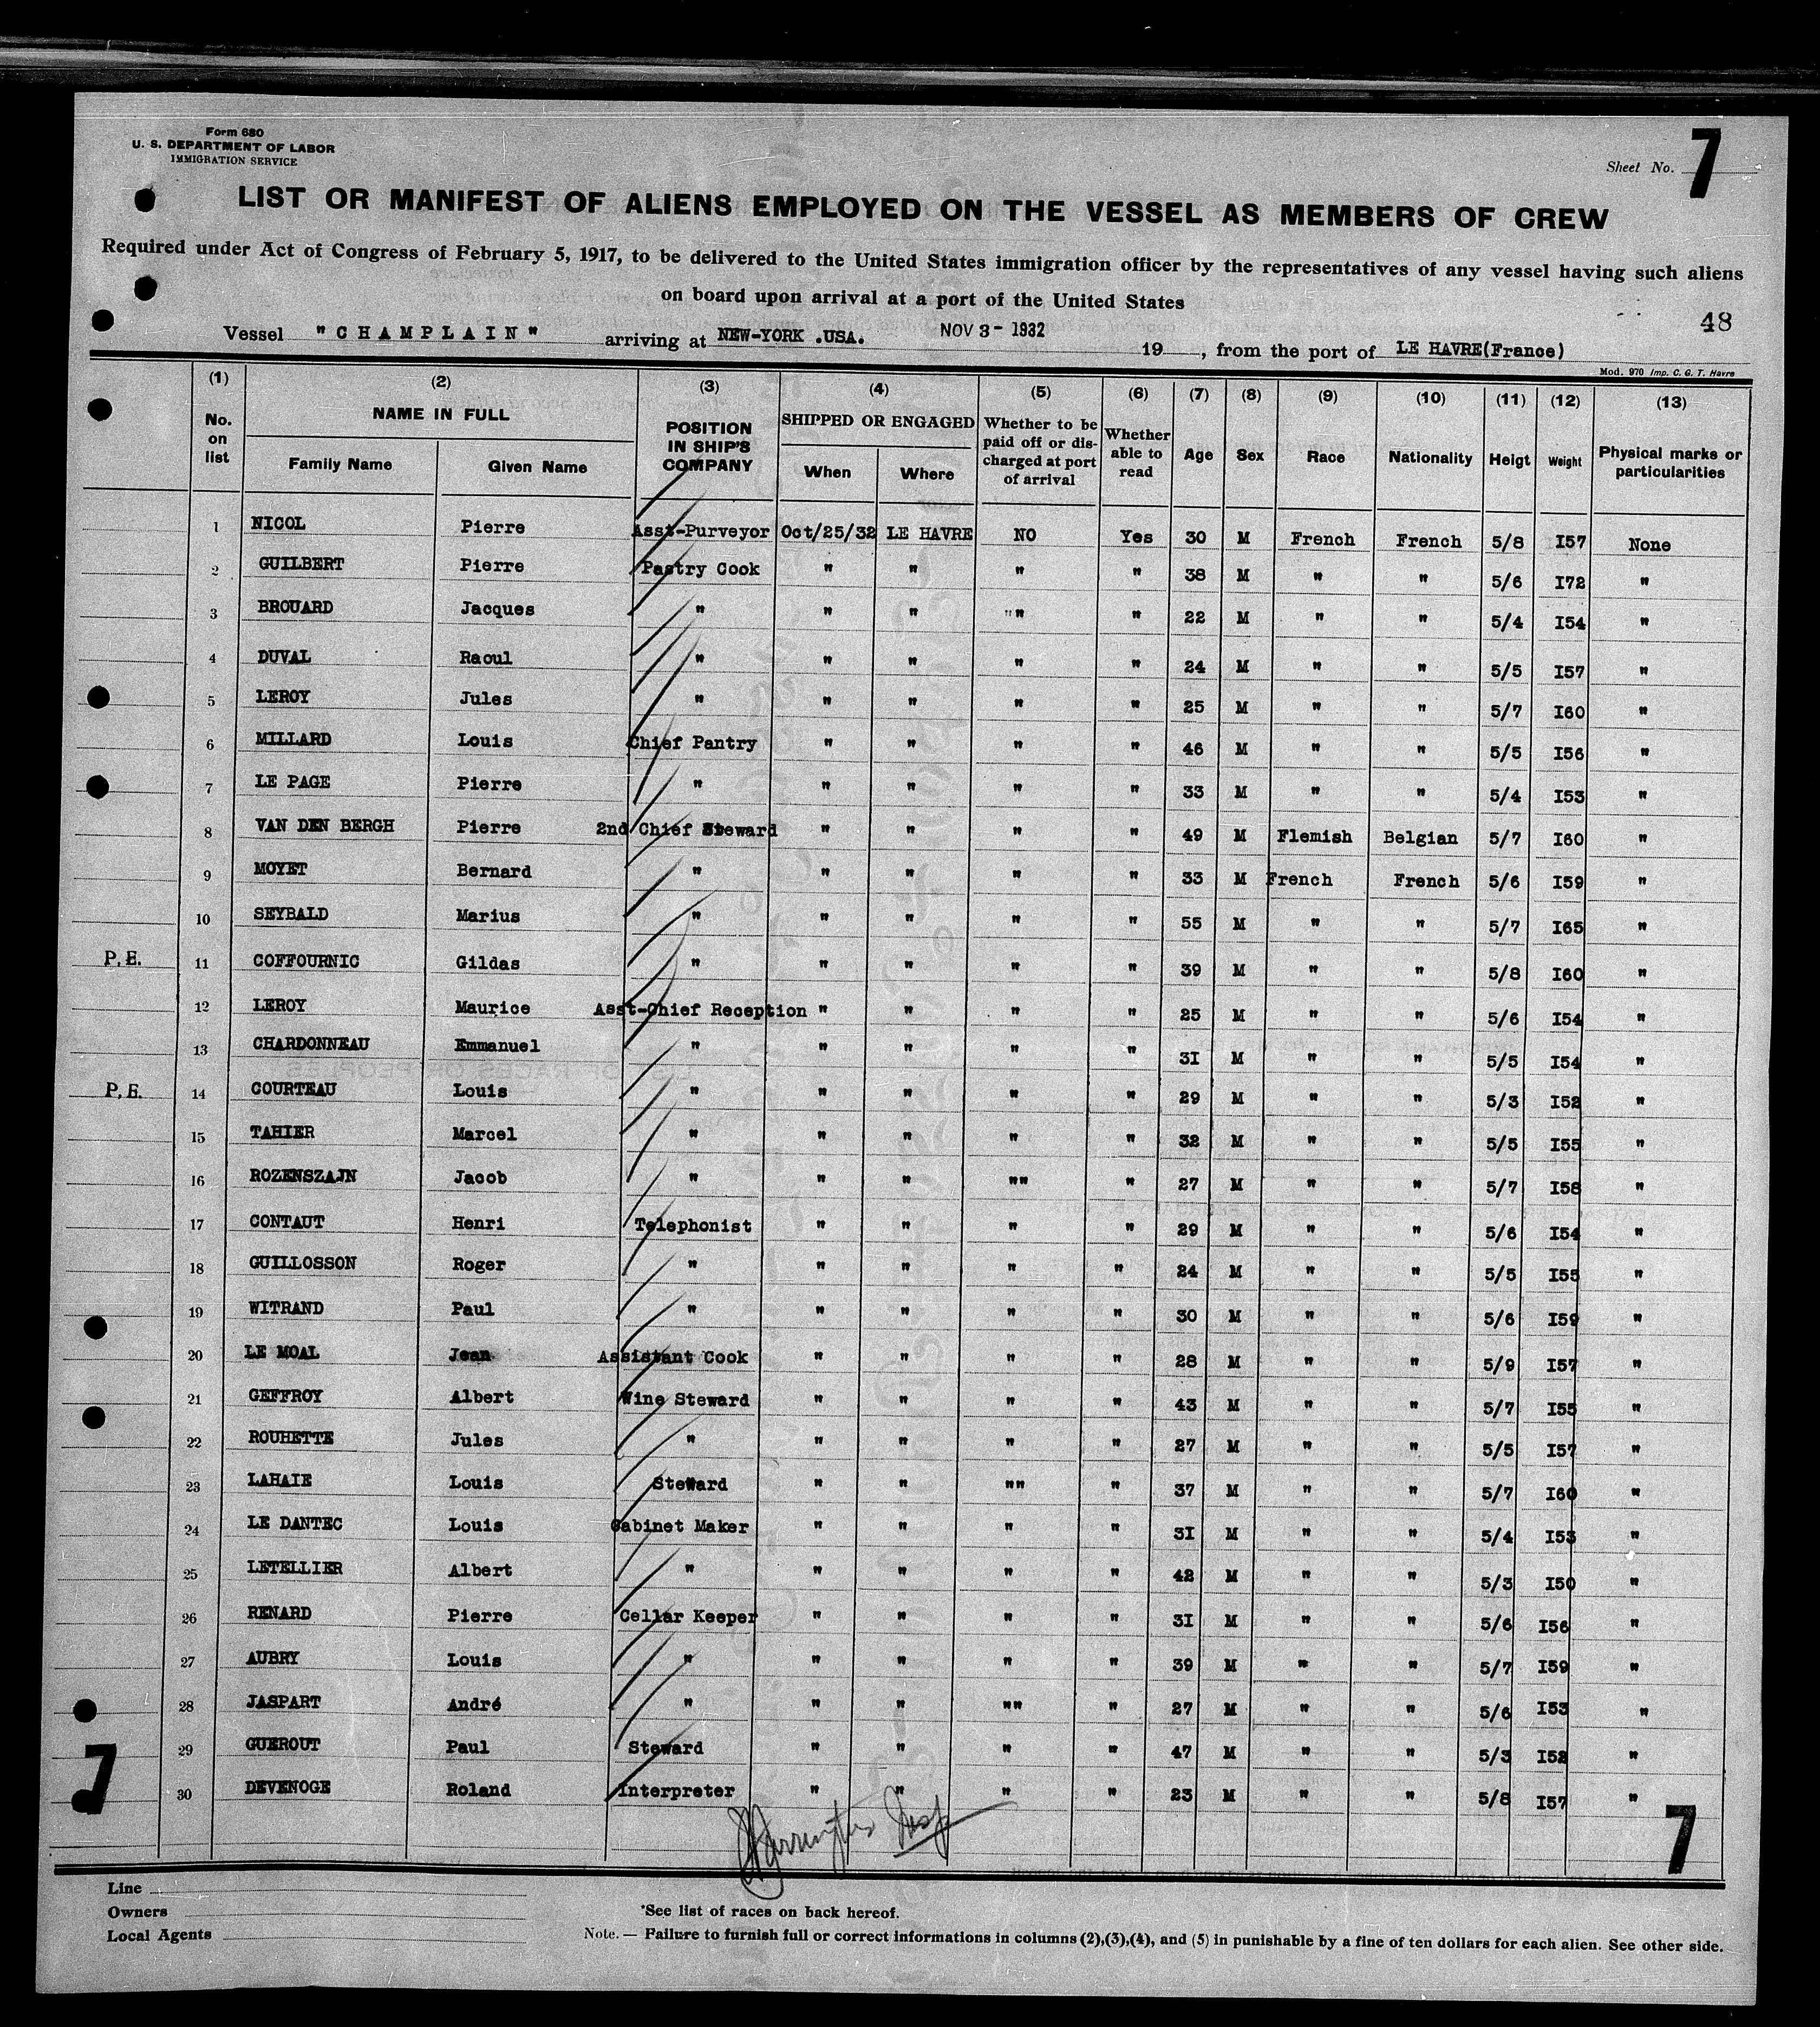 Form 680
U. S. DEPARTMENT OF LABOR
IMMIGRATION SERVICE
Sheet No. 7
LIST OR MANIFEST OF ALIENS EMPLOYED ON THE VESSEL AS MEMBERS OF CREW
Required under Act of Congress of February 5, 1917, to be delivered to the United States immigration officer by the representatives of any vessel having such aliens
on board upon arrival at a port of the United States
48
Vessel "CHAMPLAIN" arriving at NEW-YORK .USA. NOV 3 - 1932 19 , from the port of LE HAVRE(France)
Mod. 970 Imp. C. G. T. Havre
(1) (2) (3) (4) (5) (6) (7) (8) (9) (10) (11) (12) (13)
No. on list NAME IN FULL Family Name Given Name POSITION IN SHIP'S COMPANY SHIPPED OR ENGAGED When Where Whether to be paid off or dis- charged at port of arrival Whether able to read Age Sex Race Nationality Heigt Weight Physical marks or particularities
1 NICOL Pierre Asst-Purveyor Oct/25/32 LE HAVRE NO Yes 30 M French French 5/8 I57 None
2 GUILBERT Pierre Pastry Cook " " " " 38 M " " 5/6 I72 "
3 BROUARD Jacques " " " "" " 22 M " " 5/4 I54 "
4 DUVAL Raoul " " " " " 24 M " " 5/5 I57 "
5 LEROY Jules " " " " " 25 M " " 5/7 I60 "
6 MILLARD Louis Chief Pantry " " " " 46 M " " 5/5 I56 "
7 LE PAGE Pierre " " " " " 33 M " " 5/4 I53 "
8 VAN DEN BERGH Pierre 2nd Chief Steward " " " " 49 M Flemish Belgian 5/7 I60 "
9 MOYET Bernard " " " " " 33 M French French 5/6 I59 "
10 SEYBALD Marius " " " " " 55 M " " 5/7 I65 "
P.E. 11 COFFOURNIC Gildas " " " " " 39 M " " 5/8 I60 "
12 LEROY Maurice Asst-Chief Reception " " " " 25 M " " 5/6 I54 "
13 CHARDONNEAU Emmanuel " " " " " 3I M " " 5/5 I54 "
P.E. 14 COURTEAU Louis " " " " " 29 M " " 5/3 I52 "
15 TAHIER Marcel " " " " " 32 M " " 5/5 I55 "
16 ROZENSZAJN Jacob " " " "" " 27 M " " 5/7 I58 "
17 CONTAUT Henri Telephonist " " " " 29 M " " 5/6 I54 "
18 GUILLOSSON Roger " " " " " 24 M " " 5/5 I55 "
19 WITRAND Paul " " " " " 30 M " " 5/6 I59 "
20 LE MOAL Jean Assistant Cook " " " " 28 M " " 5/9 I57 "
21 GEFFROY Albert Wine Steward " " " " 43 M " " 5/7 I55 "
22 ROUHETTE Jules " " " " " 27 M " " 5/5 I57 "
23 LAHAIE Louis Steward " " "" " 37 M " " 5/7 I60 "
24 LE DANTEC Louis Cabinet Maker " " " " 3I M " " 5/4 I53 "
25 LETELLIER Albert " " " " " 42 M " " 5/3 I50 "
26 RENARD Pierre Cellar Keeper " " " " 3I M " " 5/6 I56 "
27 AUBRY Louis " " " " " 39 M " " 5/7 I59 "
28 JASPART André " " " "" " 27 M " " 5/6 I53 "
29 GUEROUT Paul Steward " " " " 47 M " " 5/3 I52 "
30 DEVENOGE Roland Interpreter " " " " 23 M " " 5/8 I57 "
7 7
Line
Owners
Local Agents
*See list of races on back hereof.
Note. — Failure to furnish full or correct informations in columns (2),(3),(4), and (5) in punishable by a fine of ten dollars for each alien. See other side.